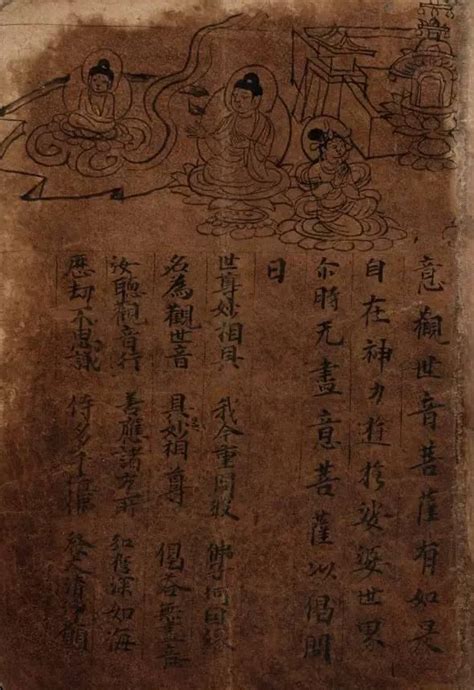 意觀世音菩薩有如是
自在神力遊於娑婆世界
尒時无盡意菩薩以偈問
曰
世尊妙相具 我今重問彼 佛子何因緣
名為觀世音 具妙相尊 偈荅無盡意
汝聽觀音行 善應諸方所 弘誓深如海
歷劫不思議 侍多千億佛 發大清淨願